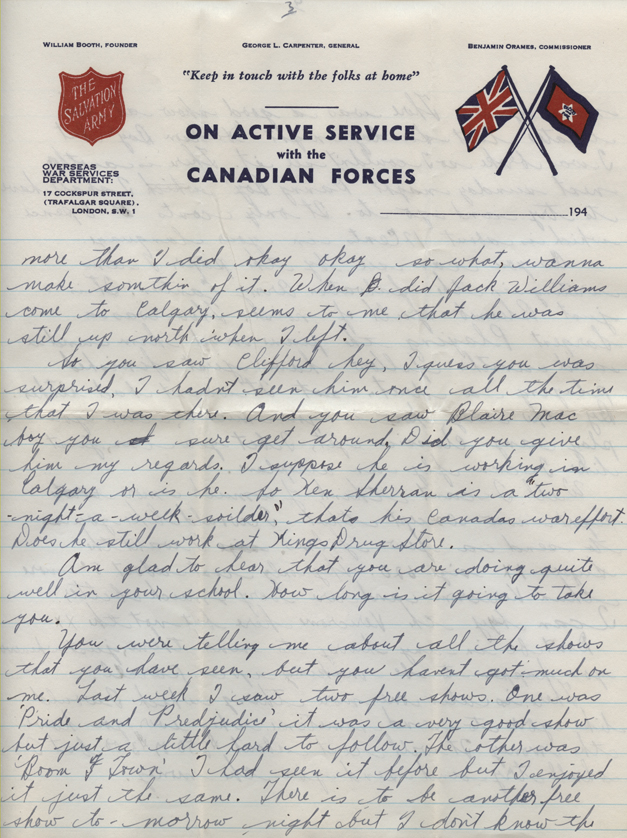 3
WILLIAM BOOTH, FOUNDER
GEORGE L. CARPENTER, GENERAL
BENJAMIN ORAMES, COMMISSIONER
THE
SALVATION
ARMY
"Keep in touch with the folks at home"
ON ACTIVE SERVICE
with the
CANADIAN FORCES
OVERSEAS
WAR SERVICES
DEPARTMENT:
17 COCKSPUR STREET,
(TRAFALGAR SQUARE),
LONDON, S.W. 1
194
more than I did okay okay so what, wanna
make somthin of it. When did Jack Williams
come to Calgary, seems to me that he was
still up north when I left.
So you saw Clifford hey, I guess you was
surprised, I hadn't seen him once all the time
that I was there. And you saw Blaire Mac
boy you sure get around. Did you give
him my regards. I suppose he is working in
Calgary or is he. So Ken Sherran is a "two
-night-a-week-soilder," thats his Canadas wareffort.
Does he still work at Kings Drug Store.
Am glad to hear that you are doing quite
well in your school. How long is it going to take
you.
You were telling me about all the shows
that you have seen, but you havent got much on
me. Last week I saw two free shows. One was
'Pride and Predjudice' it was a very good show
but just a little hard to follow. The other was
'Boom Town' I had seen it before but I enjoyed
it just the same. There is to be another free
show to-morrow night but I don't know the